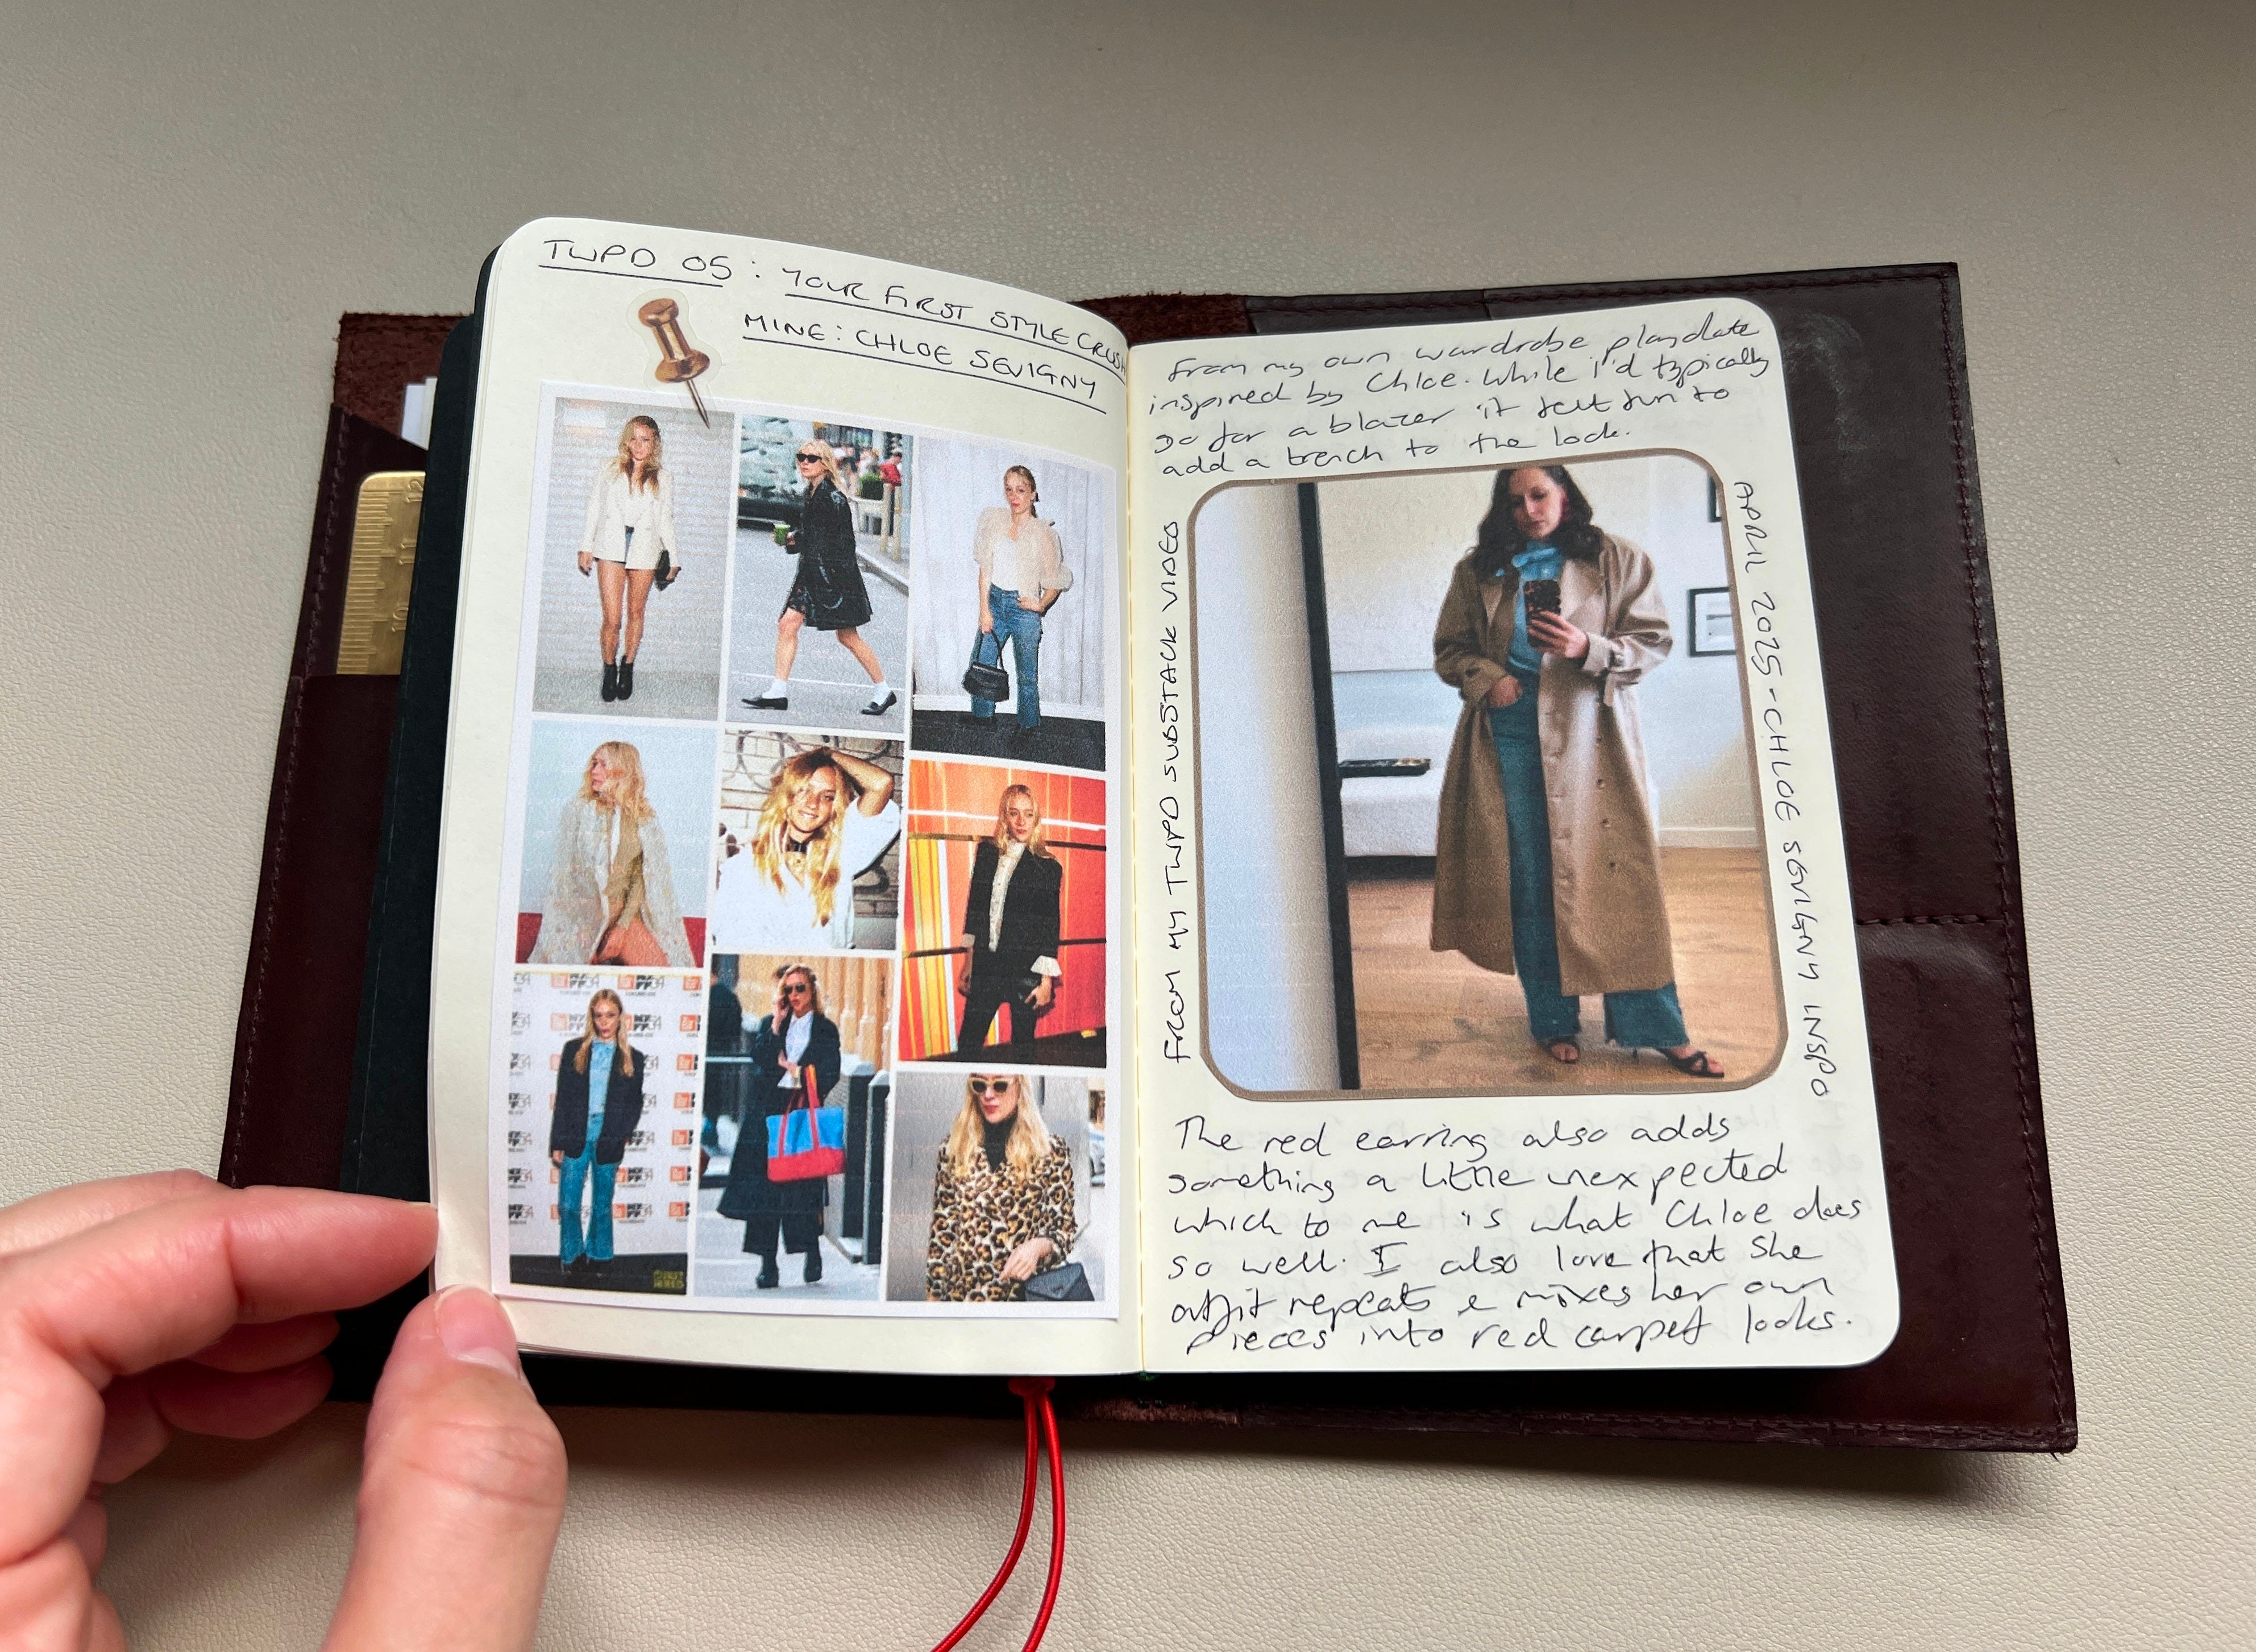 TWPD 05: YOUR FIRST STYLE CRUSH
MINE: CHLOE SEVIGNY
From my own wardrobe playdate
inspired by Chloe. While i'd typically
go for a blazer it felt fun to
add a trench to the look.
FROM MY TWPD SUBSTACK VIDEO
APRIL 2025 - CHLOE SEVIGNY INSPO
The red earring also adds
something a little unexpected
which to me is what Chloe does
so well. I also love that she
outfit repeats & mixes her own
pieces into red carpet looks.
11
10